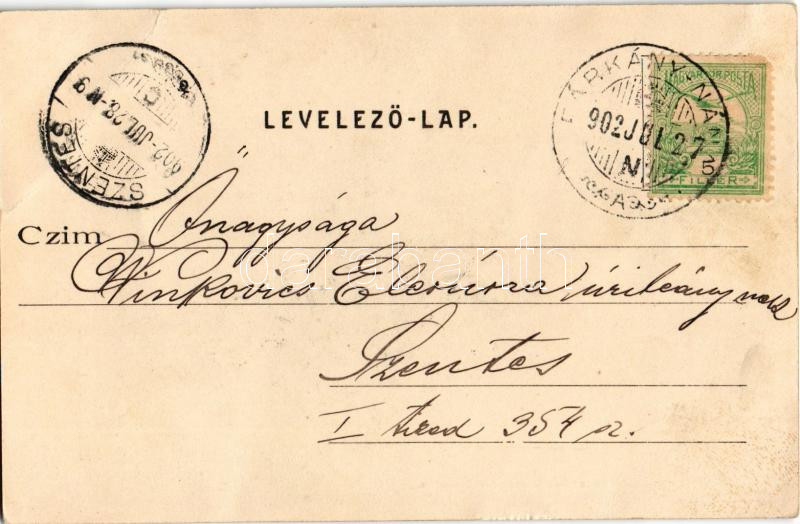 SZENTES
902 JUL 28
LEVELEZŐ-LAP.
PÁRKÁNY-NÁNA
902 JUL 27
MAGYAR KIR. POSTA
5
FILLÉR
Czim Önagysága
Vinkovics Eleónora úrileánynak
Szentes
I. tized 354 sz.
darabanth